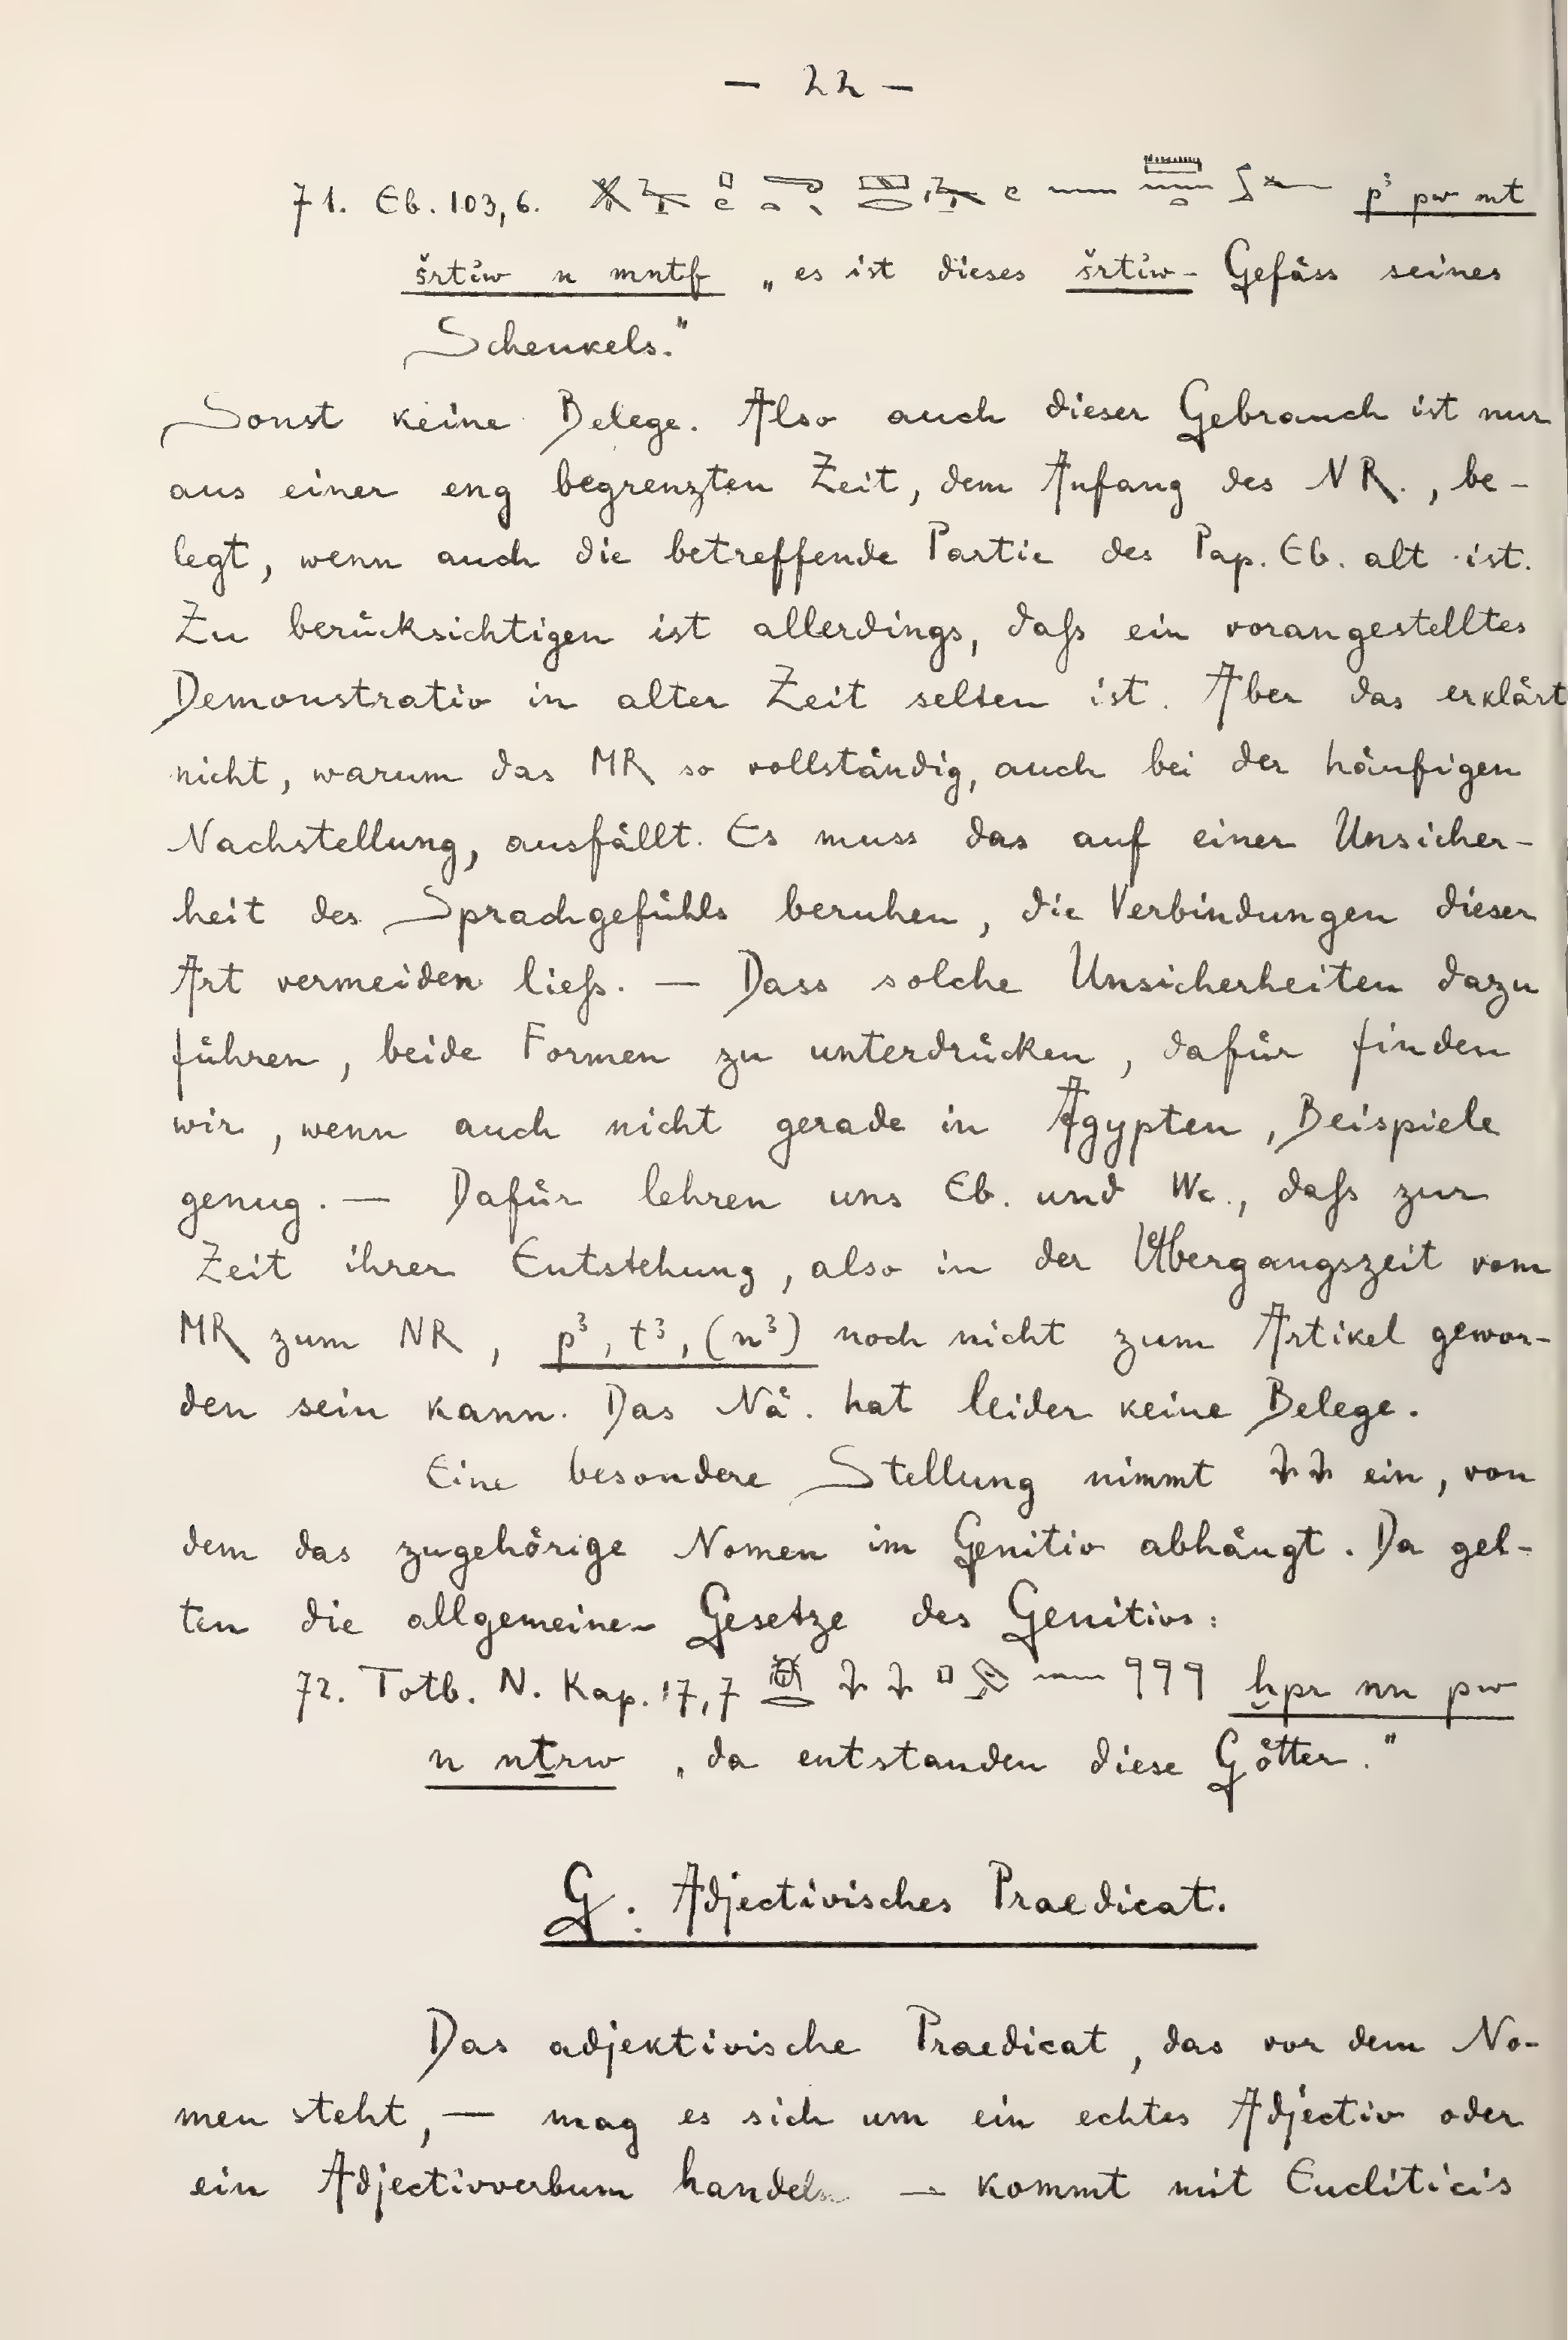 — 22 —
71. Eb. 103,6. pꜣ pw mt
šrtỉw n mntf „es ist dieses šrtỉw-Gefäss seines
Schenkels."
Sonst keine Belege. Also auch dieser Gebrauch ist nur
aus einer eng begrenzten Zeit, dem Anfang des NR., be-
legt, wenn auch die betreffende Partie des Pap. Eb. alt ist.
Zu berücksichtigen ist allerdings, daſs ein vorangestelltes
Demonstrativ in alter Zeit selten ist. Aber das erklärt
nicht, warum das MR so vollständig, auch bei der häufigen
Nachstellung, ausfällt. Es muss das auf einer Unsicher-
heit des Sprachgefühls beruhen, die Verbindungen dieser
Art vermeiden lieſs. — Dass solche Unsicherheiten dazu
führen, beide Formen zu unterdrücken, dafür finden
wir, wenn auch nicht gerade in Ägypten, Beispiele
genug. — Dafür lehren uns Eb. und We., daſs zur
Zeit ihrer Entstehung, also in der Übergangszeit vom
MR zum NR, pꜣ, tꜣ, (nꜣ) noch nicht zum Artikel gewor-
den sein kann. Das Nä. hat leider keine Belege.
Eine besondere Stellung nimmt 𓇓𓇓 ein, von
dem das zugehörige Nomen im Genitiv abhängt. Da gel-
ten die allgemeinen Gesetze des Genitivs:
72. Totb. N. Kap. 17,7 ḫpr nn pw
n nṯrw „da entstanden diese Götter."
G. Adjectivisches Praedicat.
Das adjektivische Praedicat, das vor dem No-
men steht, — mag es sich um ein echtes Adjectiv oder
ein Adjectivverbum handeln — kommt mit Encliticis